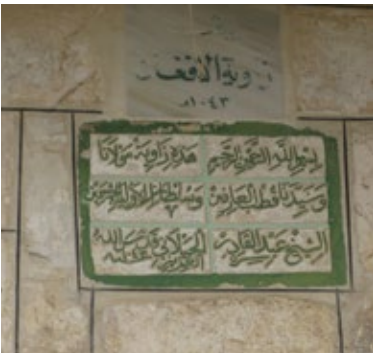 زاوية الافغان
١٠٤٣هـ
بسم الله الرحمن الرحيم هذه زاوية مولانا
وسيدنا قطب العارفين وسلطان الاولياء
الشيخ عبد القادر الجيلاني قدس الله